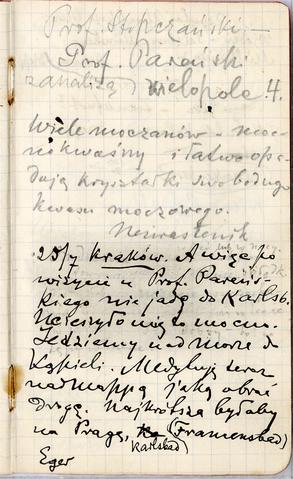 Prof. Stopczański –
Prof. Pareński
z analizą Wielopole 4.
Wiele moczanów – moc-
no kwaśny i łatwo opa-
dają kryształki swobodnego
kwasu moczowego.
Neurastenik
25/7 Kraków. A więc po
wizycie u Prof. Pareńs-
kiego nie jadę do Karlsb.
Ucieszyło mię to mocno.
Jedziemy nad morze do
Kąpieli. Medytuję teraz
nad mappą jaką obrać
drogę. Najkrótsza byłaby
na Pragę, (Framensbad)
Karlsbad)
Eger